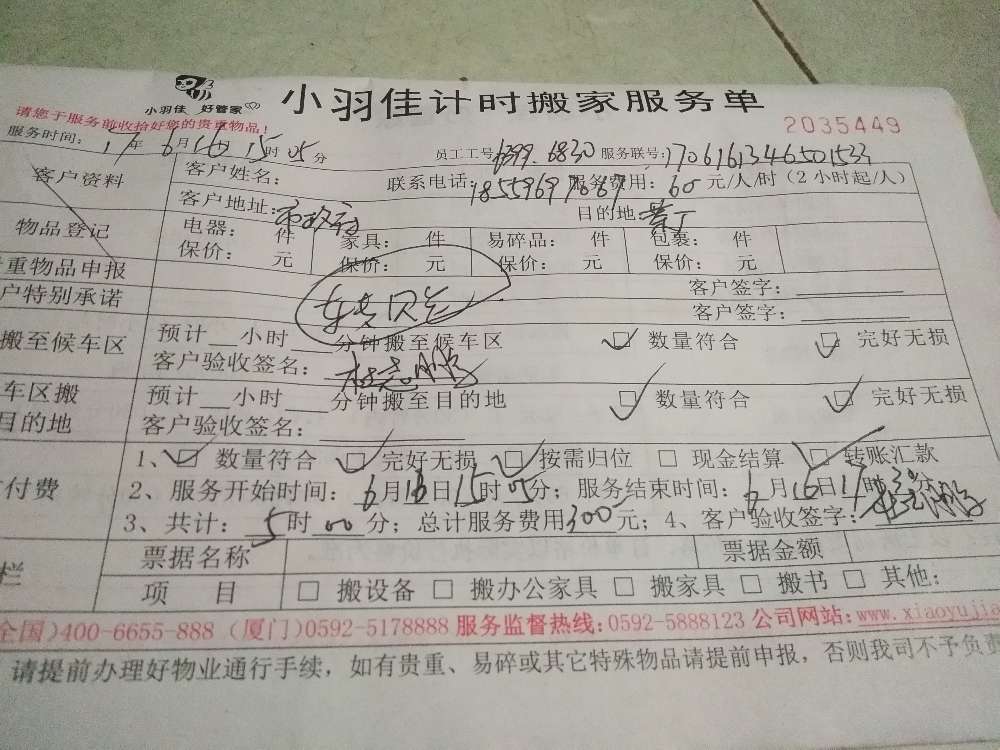 小羽佳 好管家
小羽佳计时搬家服务单
2035449
请您于服务前收拾好您的贵重物品!
服务时间: 17年6月16 15时05分
员工工号: 6830 服务联号: 1706161346501533
客户资料
客户姓名:
联系电话: 服务费用: 60 元/人/时(2小时起/人)
客户地址: 市政府
目的地
物品登记
电器: 件 家具: 件 易碎品: 件 包裹: 件
保价: 元 保价: 元 保价: 元 保价: 元
重物品申报
客户签字:
户特别承诺
客户签字:
搬至候车区
预计 小时 分钟搬至候车区 ☑ 数量符合 ☑ 完好无损
客户验收签名:
车区搬
目的地
预计 小时 分钟搬至目的地 ☑ 数量符合 ☑ 完好无损
客户验收签名:
付费
1、☑ 数量符合 ☑ 完好无损 ☑ 按需归位 □ 现金结算 ☑ 转账汇款
2、服务开始时间: 6月16日15时05分; 服务结束时间: 6月16日17时
3、共计: 5时00分; 总计服务费用300元; 4、客户验收签字:
栏
票据名称 票据金额
项 目 □ 搬设备 □ 搬办公家具 □ 搬家具 □ 搬书 □ 其他:
全国)400-6655-888 (厦门)0592-5178888 服务监督热线:0592-5888123 公司网站:www.xiaoyujia
请提前办理好物业通行手续,如有贵重、易碎或其它特殊物品请提前申报,否则我司不予负责